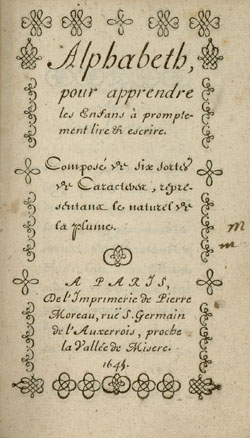 Alphabeth,
pour apprendre
les Enfans à prompte-
ment lire & escrire.
Composé de six sortes
de Caracteres, repre-
sentans le naturel de
la plume.
A PARIS,
De l'Imprimerie de Pierre
Moreau, ruë S. Germain
de l'Auxerrois, proche
la Vallée de Misere.
1644.
m
m